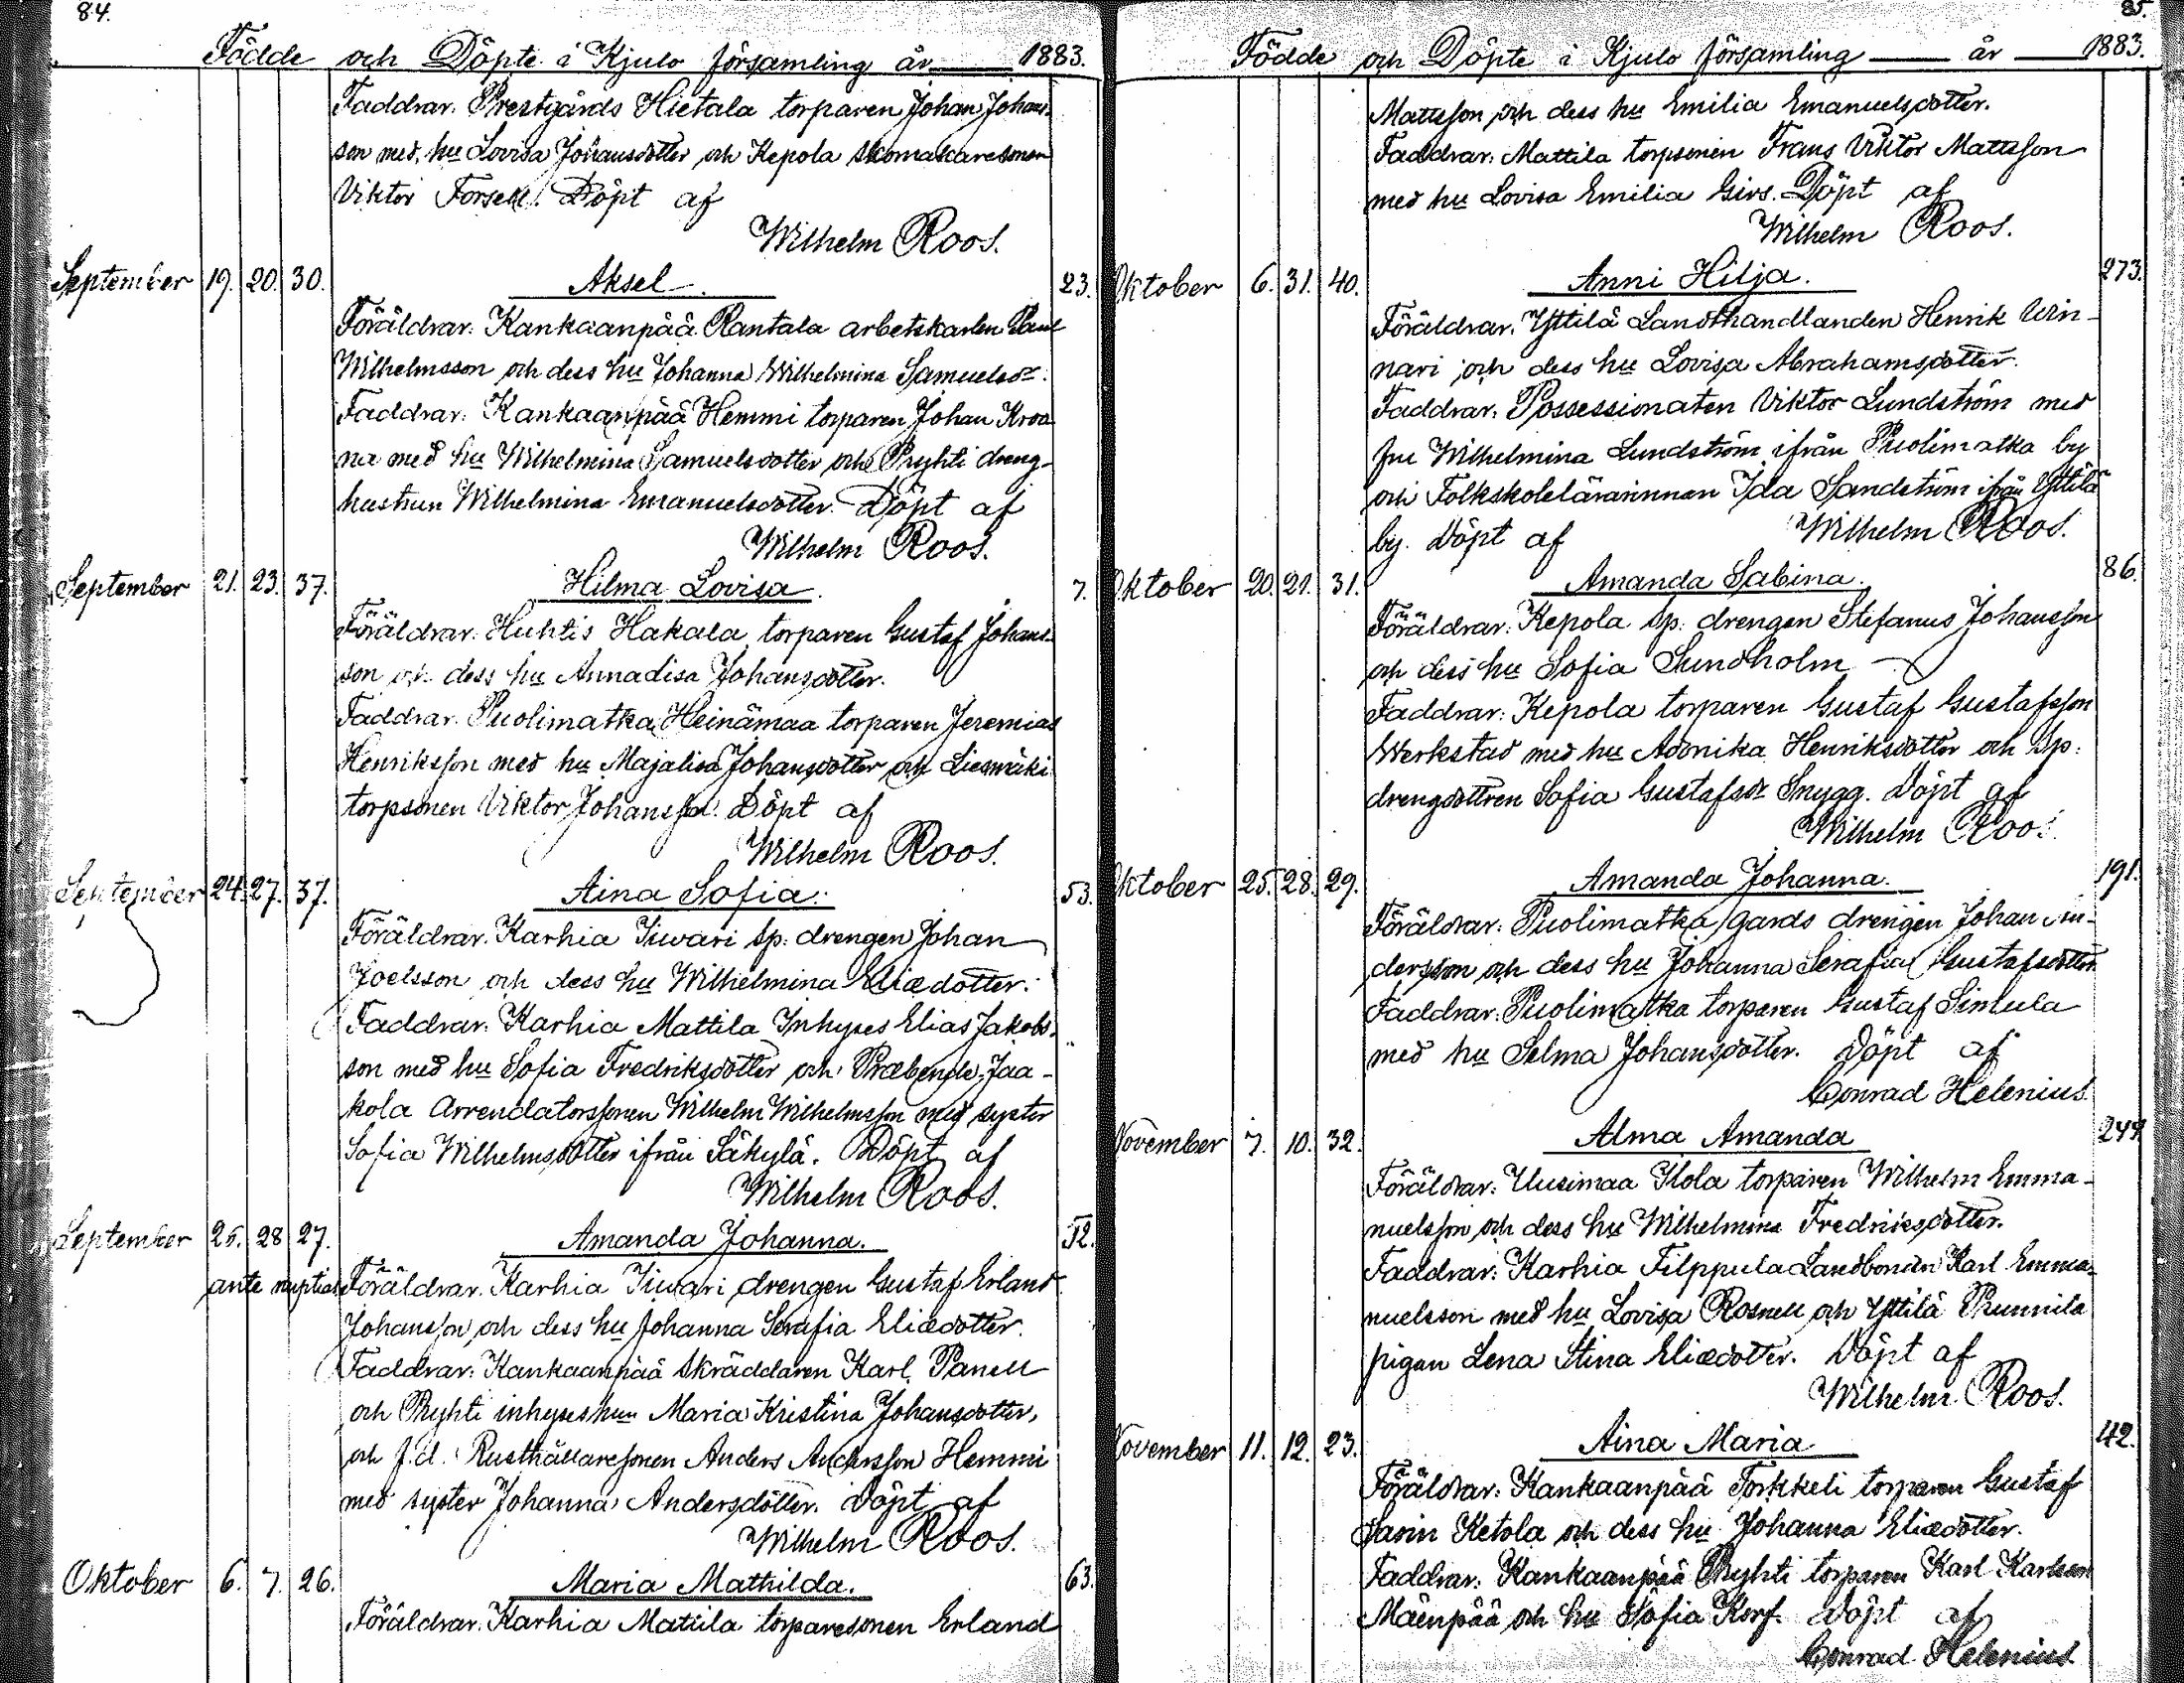 84.
Födde och Döpte i Kjulo församling år 1883.
Faddrar: Prestgårds Hietala torparen Johan Johans-
son med hu Lovisa Johansdotter och Kepola skomakaresonen
Viktor Forsell. Döpt af
Wilhelm Roos.
September 19. 20. 30. Aksel. 23.
Föräldrar: Kankaanpää Rantala arbetskarlen
Wilhelmsson och dess hu Johanna Wilhelmina Samuelsdr.
Faddrar: Kankaanpää Hemmi torparen Johan Kroo-
na med hu Wilhelmina Samuelsdotter och Pryhti dreng-
hustrun Wilhelmina Emanuelsdotter. Döpt af
Wilhelm Roos.
September 21. 23. 37. Hilma Lovisa. 7.
Föräldrar: Huhtis Hakala torparen Gustaf Johans-
son och dess hu Annalisa Johansdotter.
Faddrar: Puolimatka Heinämaa torparen Jeremias
Henriksson med hu Majalisa Johansdotter och Liesmäki
torpsonen Viktor Johansson. Döpt af
Wilhelm Roos.
September 24. 27. 37. Aina Sofia. 53.
Föräldrar: Karhia Iiwari sp: drengen Johan
Joelsson och dess hu Wilhelmina Eliædotter.
Faddrar: Karhia Mattila Inhyses Elias Jakobs-
son med hu Sofia Fredriksdotter och Præbende Jaa-
kola Arrendatorssonen Wilhelm Wilhelmsson med syster
Sofia Wilhelmsdotter ifrån Säkylä. Döpt af
Wilhelm Roos.
September 25. 28 27. Amanda Johanna. 52.
ante nuptias Föräldrar: Karhia Iiwari drengen Gustaf Erland
Johansson och dess hu Johanna Serafia Eliædotter.
Faddrar: Kankaanpää skräddaren Karl Panell
och Pryhti inhyseshun Maria Kristina Johansdotter,
och f.d. Rusthållaresonen Anders Andersson Hemmi
med syster Johanna Andersdotter. Döpt af
Wilhelm Roos.
Oktober 6. 7. 26. Maria Mathilda. 63.
Föräldrar: Karhia Mattila torparesonen Erland
85.
Födde och Döpte i Kjulo församling år 1883.
Mattsson och dess hu Emilia Emanuelsdotter.
Faddrar: Mattila torpsonen Frans Viktor Mattsson
med hu Lovisa Emilia Girs. Döpt af
Wilhelm Roos.
Oktober 6. 31. 40. Anni Hilja. 273.
Föräldrar: Yttilä Landthandlanden Henrik Win-
nari och dess hu Lovisa Abrahamsdotter.
Faddrar: Possessionaten Viktor Lundström med
fru Wilhelmina Lundström ifrån Puolimatka by
och Folkskolelärarinnan Ida Sandström ifrån Yttilä
by. Döpt af Wilhelm Roos.
Oktober 20. 21. 31. Amanda Sabina. 86.
Föräldrar: Kepola sp: drengen Stefanus Johansson
och dess hu Sofia Sundholm
Faddrar: Kepola torparen Gustaf Gustafsson
Werkstad med hu Adonika Henriksdotter och sp:
drengdottren Sofia Gustafsdr Snygg. Döpt af
Wilhelm Roos.
Oktober 25. 28. 29. Amanda Johanna. 191.
Föräldrar: Puolimatka gårds drengen Johan An-
dersson och dess hu Johanna Serafia Gustafsdotter
Faddrar: Puolimatka torparen Gustaf Simula
med hu Selma Johansdotter. Döpt af
Conrad Helenius.
November 7. 10. 32. Alma Amanda 249.
Föräldrar: Uusimaa Ilola torparen Wilhelm Emma-
nuelsson och dess hu Wilhelmina Fredriksdotter.
Faddrar: Karhia Filppula Landbonden Karl Emma-
nuelsson med hu Lovisa Rosnell och Yttilä Prunnila
pigan Lena Stina Eliædotter. Döpt af
Wilhelm Roos.
November 11. 12. 23. Aina Maria 42.
Föräldrar: Kankaanpää Torkkeli torparen Gustaf
Savin Ketola och dess hu Johanna Eliædotter.
Faddrar: Kankaanpää Pryhti torparen Karl Karlsson
Mäenpää och hu Sofia Korf. Döpt af
Conrad Helenius